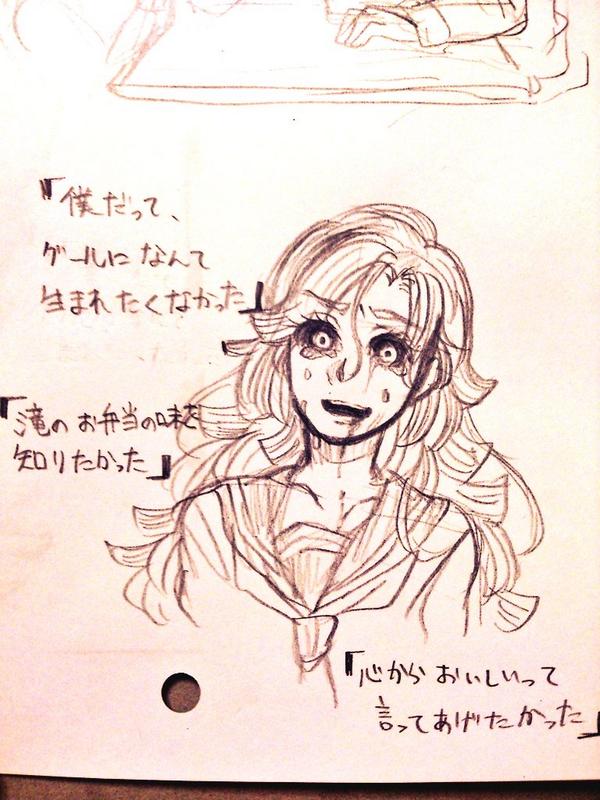 「僕だって、
グールになんて
生まれたくなかった」
「滝のお弁当の味を
知りたかった」
「心からおいしいって
言ってあげたかった」